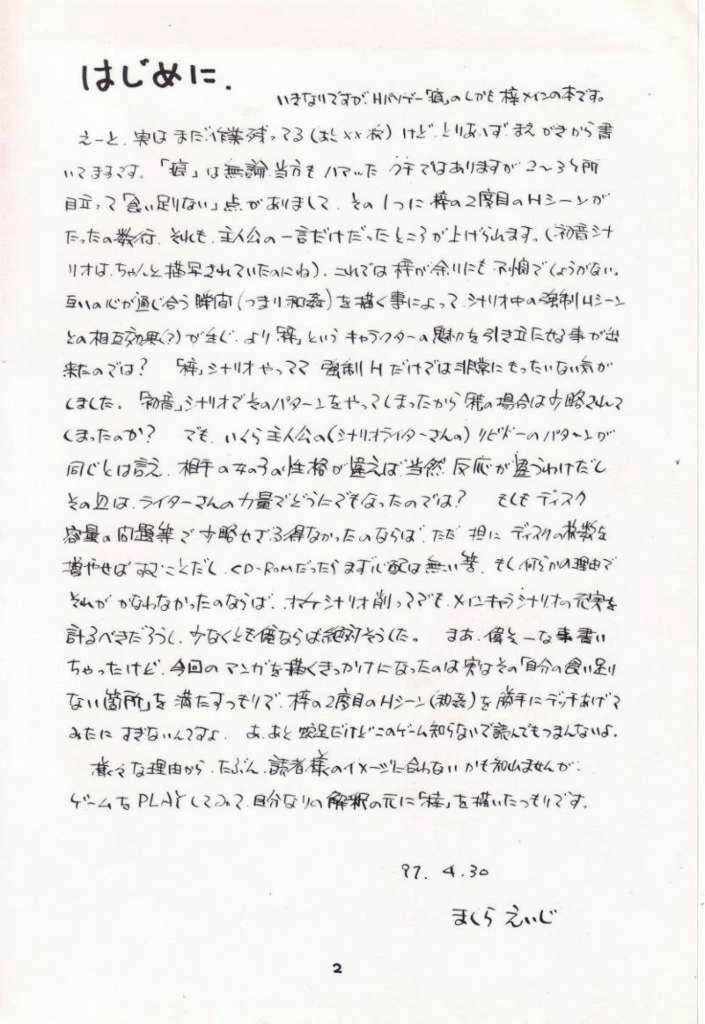 はじめに.
いきなりですが、Hパソゲー「痕」のしかも梓メインの本です。
えーと、実はまだ作業残ってる(あと××枚)けど、とりあえず、まえがきから書
いてます。「痕」は無論当方もハマったクチではありますが2〜3ヶ所
目立って「食い足りない」点がありまして、その1つに梓の2度目のHシーンが
たったの数行、それも、主人公の一言だけだったところが上げられます。(初音シナ
リオは、ちゃんと描写されていたのにね)。これでは梓が余りにも不憫でしょうがない。
互いの心が通じ合う瞬間(つまり和姦)を描く事によって、シナリオ中の強制Hシーン
との相互効果(?)が生じ、より「梓」というキャラクターの魅力を引き立たせる事が出
来たのでは? 「梓」シナリオやってて 強制Hだけでは非常にもったいない気が
しました。「初音」シナリオでそのパターンをやってしまったから「梓」の場合は省略されて
しまったのか? でも、いくら主人公の(シナリオライターさんの)リビドーのパターンが
同じとは言え、相手の女の子の性格が違えば当然、反応が違うわけだし
その辺は、ライターさんの力量でどうにでもなったのでは? もしもディスク
容量の問題等で省略せざる得なかったのならば、ただ単にディスクの枚数を
増やせばすむことだし、CD-ROMだったらまず心配は無い筈、もし何らかの理由で
それがかなわなかったのならば、オマケシナリオ削ってでも、メインキャラシナリオの充実を
計るべきだろうし、少なくとも俺ならば絶対そうした。 まあ、偉そーな事書い
ちゃったけど、今回のマンガを描くきっかけになったのは実はその「自分の食い足り
ない箇所」を満たすつもりで、梓の2度目のHシーン(和姦)を勝手にデッチあげて
みたにすぎないんですよ。 あ、あと蛇足だけどこのゲーム知らないで読んでもつまんないよ。
様々な理由から、たぶん、読者様のイメージに合わないかも知れませんが、
ゲームをPLAYしてみて、自分なりの解釈の元に「梓」を描いたつもりです。
97. 4.30
まくら えいじ
2